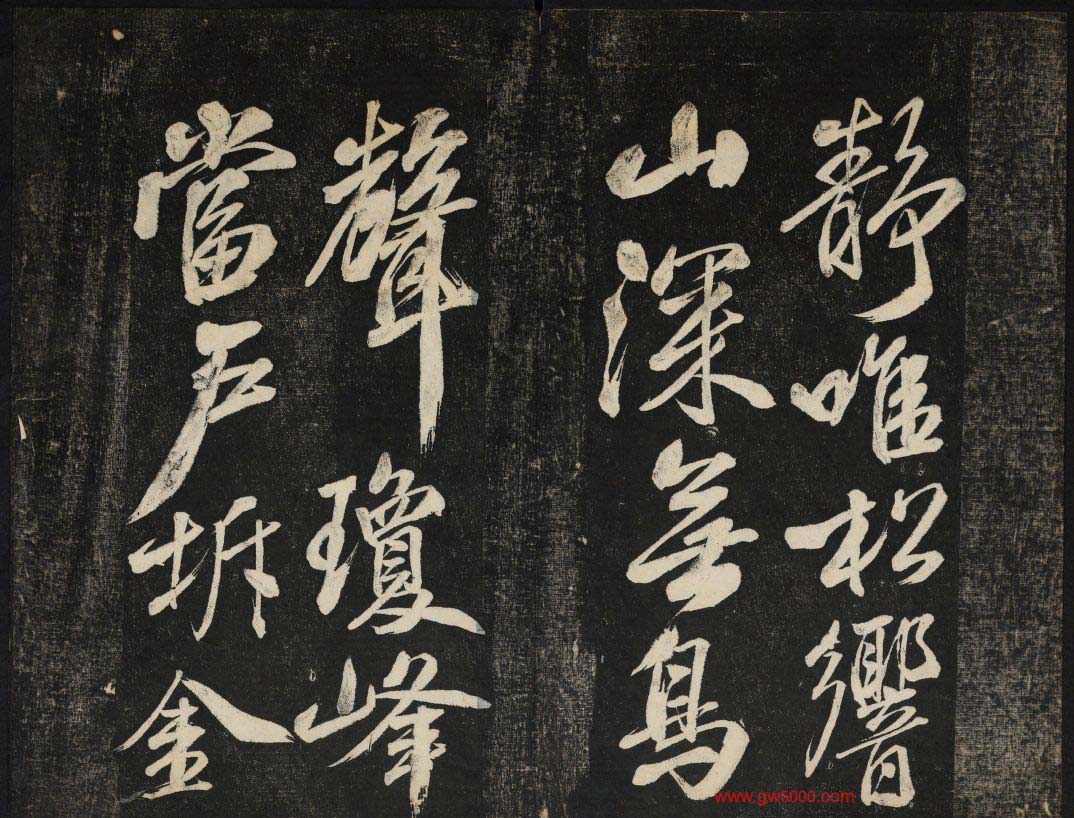 靜唯松響
山深無鳥
聲瓊峰
當戶坼金
www.gw5000.com